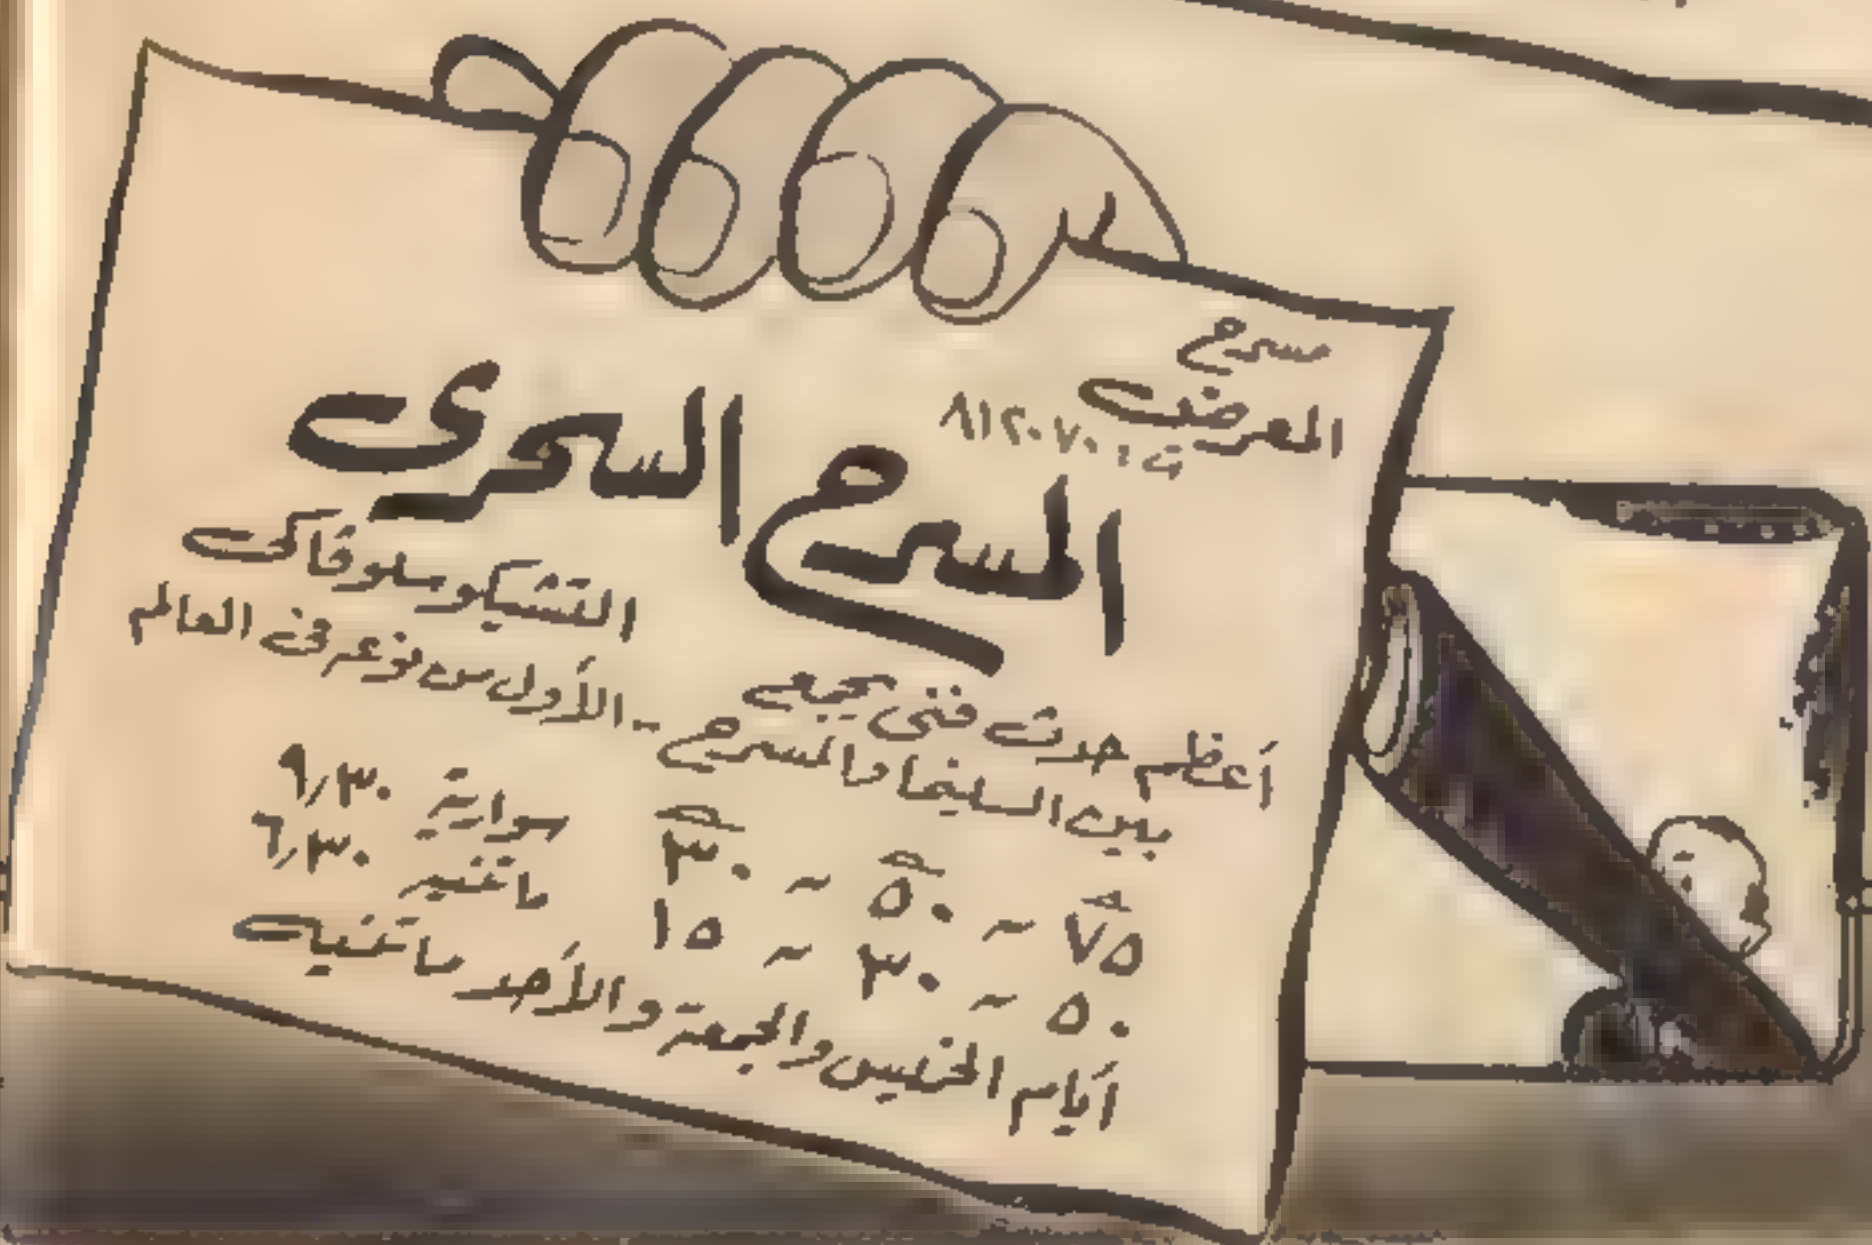 مسرح
المعرض
ت: ٨١٢٠٧٠
المسرح السحرى
التشيكوسلوفاكى
أعظم حدث فنى يجمع
بين السينما والمسرح - الأول من نوعه فى العالم
٧٥ - ٥٠ - ٣٠ سواريه ٩/٣٠
٥٠ - ٣٠ - ١٥ ماتنيه ٦/٣٠
أيام الخميس والجمعة والأحد ماتنيه